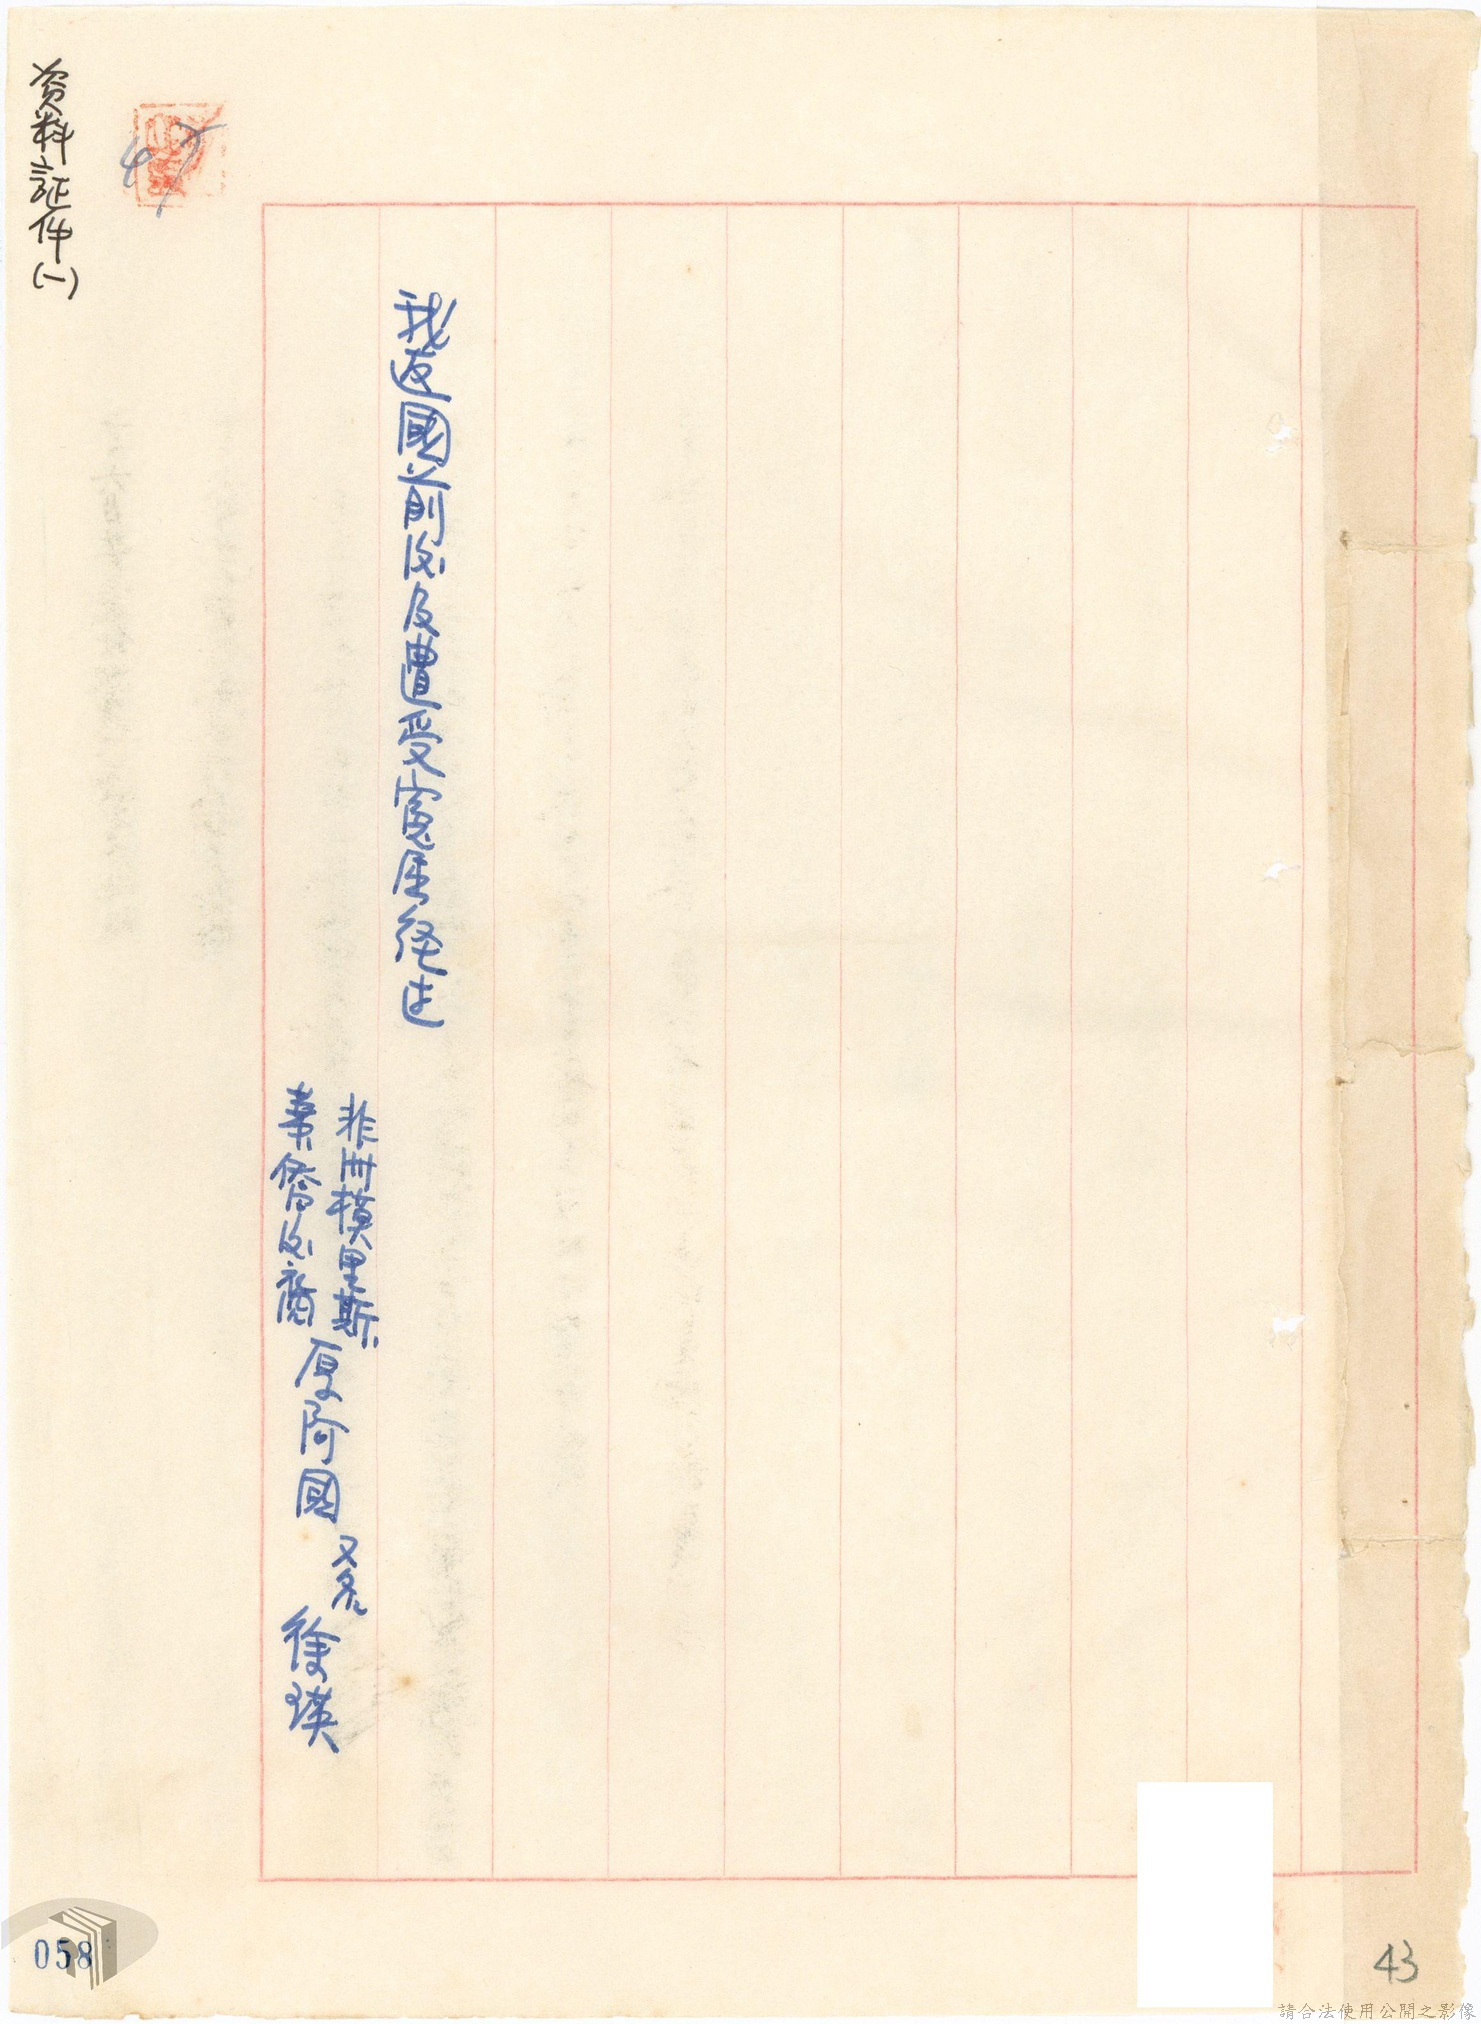 我返國前後及遭受冤屈經过
非洲模里斯
華僑後裔
厚阿國
又名
徐瑛
資料証件(一)
47
058
43
請合法使用公開之影像